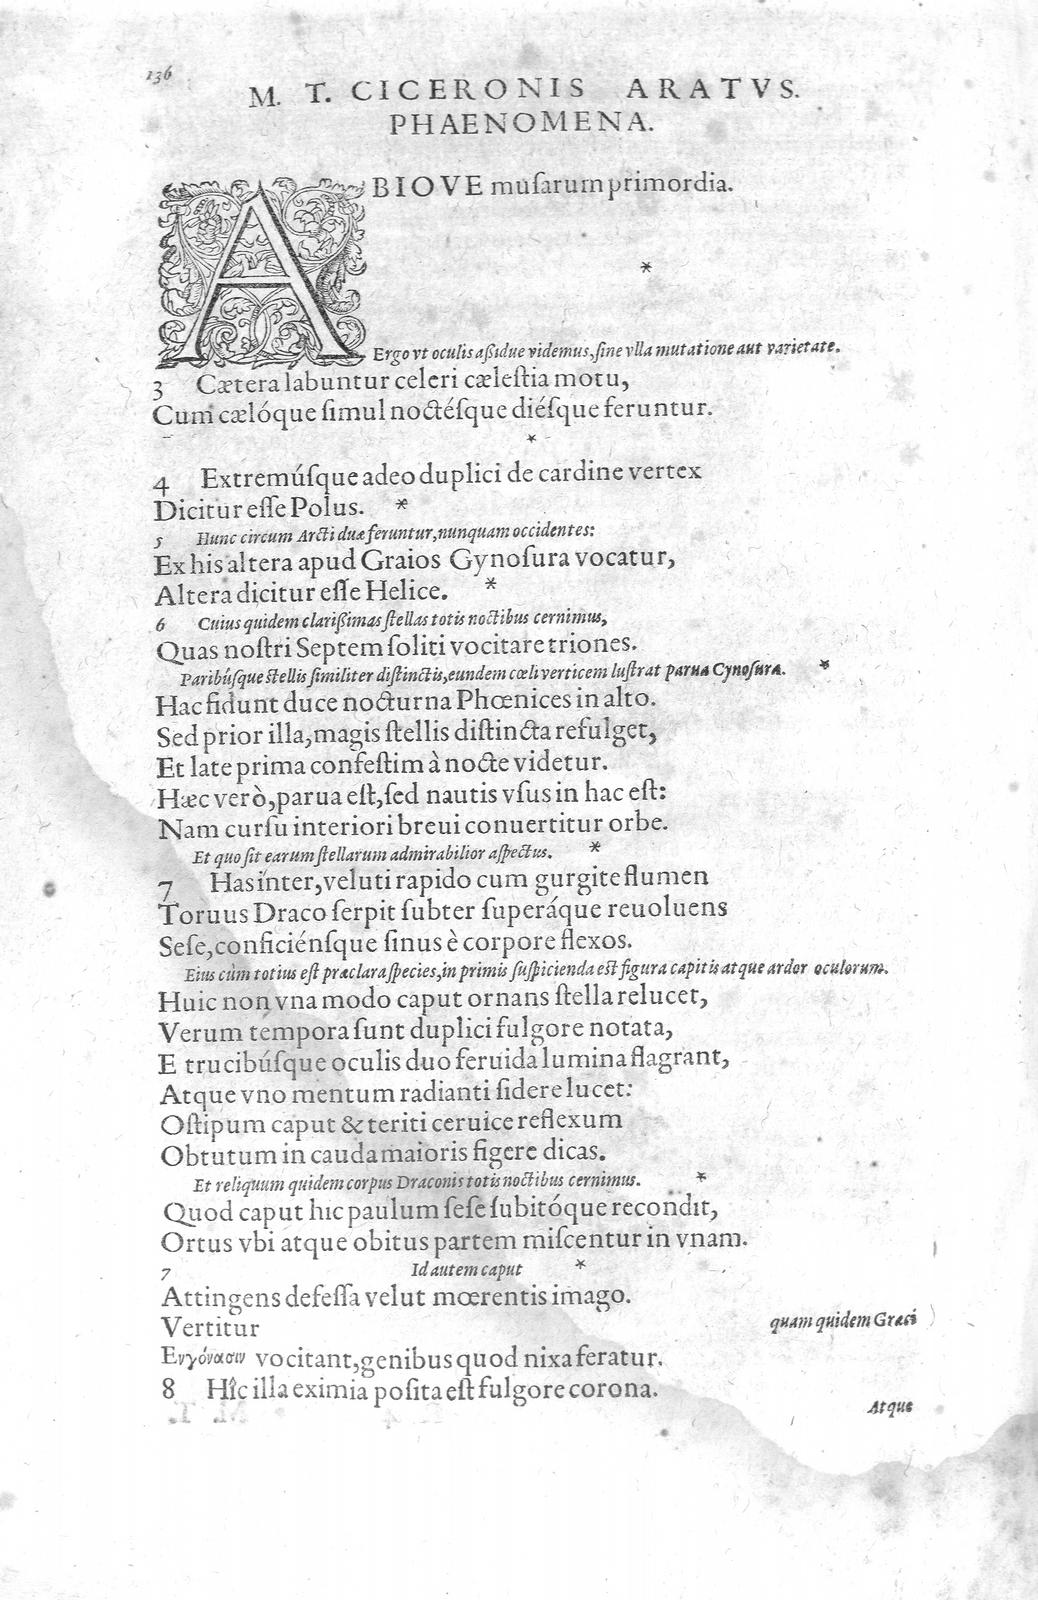 136
M. T. CICERONIS ARATVS.
PHAENOMENA.
ABIOVE muſarum primordia.
*
Ergo vt oculis aßidue videmus, ſine vlla mutatione aut varietate.
3 Cætera labuntur celeri cæleſtia motu,
Cum cælóque ſimul noctéſque diéſque feruntur.
*
4 Extremúſque adeo duplici de cardine vertex
Dicitur eſſe Polus. *
5 Hunc circum Arcti duæ feruntur, nunquam occidentes:
Ex his altera apud Graios Gynoſura vocatur,
Altera dicitur eſſe Helice. *
6 Cuius quidem clarißimas ſtellas totis noctibus cernimus,
Quas noſtri Septem ſoliti vocitare triones.
Paribúſque ſtellis ſimiliter diſtinctis, eundem cœli verticem luſtrat parua Cynoſura. *
Hac fidunt duce nocturna Phœnices in alto.
Sed prior illa, magis ſtellis diſtincta refulget,
Et late prima confeſtim à nocte videtur.
Hæc verò, parua eſt, ſed nautis vſus in hac eſt:
Nam curſu interiori breui conuertitur orbe.
Et quo ſit earum ſtellarum admirabilior aſpectus. *
7 Has inter, veluti rapido cum gurgite flumen
Toruus Draco ſerpit ſubter ſuperáque reuoluens
Seſe, conficiénſque ſinus è corpore flexos.
Eius cùm totius eſt præclara ſpecies, in primis ſuſpicienda eſt figura capitis atque ardor oculorum.
Huic non vna modo caput ornans ſtella relucet,
Verum tempora ſunt duplici fulgore notata,
E trucibúſque oculis duo feruida lumina flagrant,
Atque vno mentum radianti ſidere lucet:
Oſtipum caput & teriti ceruice reflexum
Obtutum in cauda maioris figere dicas.
Et reliquum quidem corpus Draconis totis noctibus cernimus. *
Quod caput hic paulum ſeſe ſubitóque recondit,
Ortus vbi atque obitus partem miſcentur in vnam.
7 Id autem caput *
Attingens defeſſa velut mœrentis imago.
Vertitur quam quidem Græci
Eνγόνασιν vocitant, genibus quod nixa feratur.
8 Hîc illa eximia poſita eſt fulgore corona.
Atque